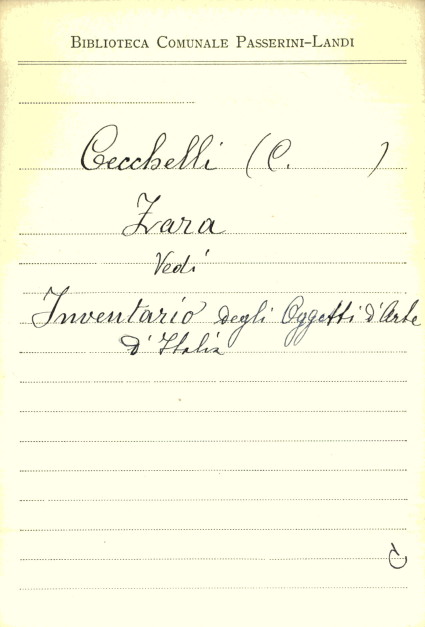 BIBLIOTECA COMUNALE PASSERINI-LANDI
Cecchelli (C. )
Zara
Vedi
Inventario degli Oggetti d'Arte
d'Italia